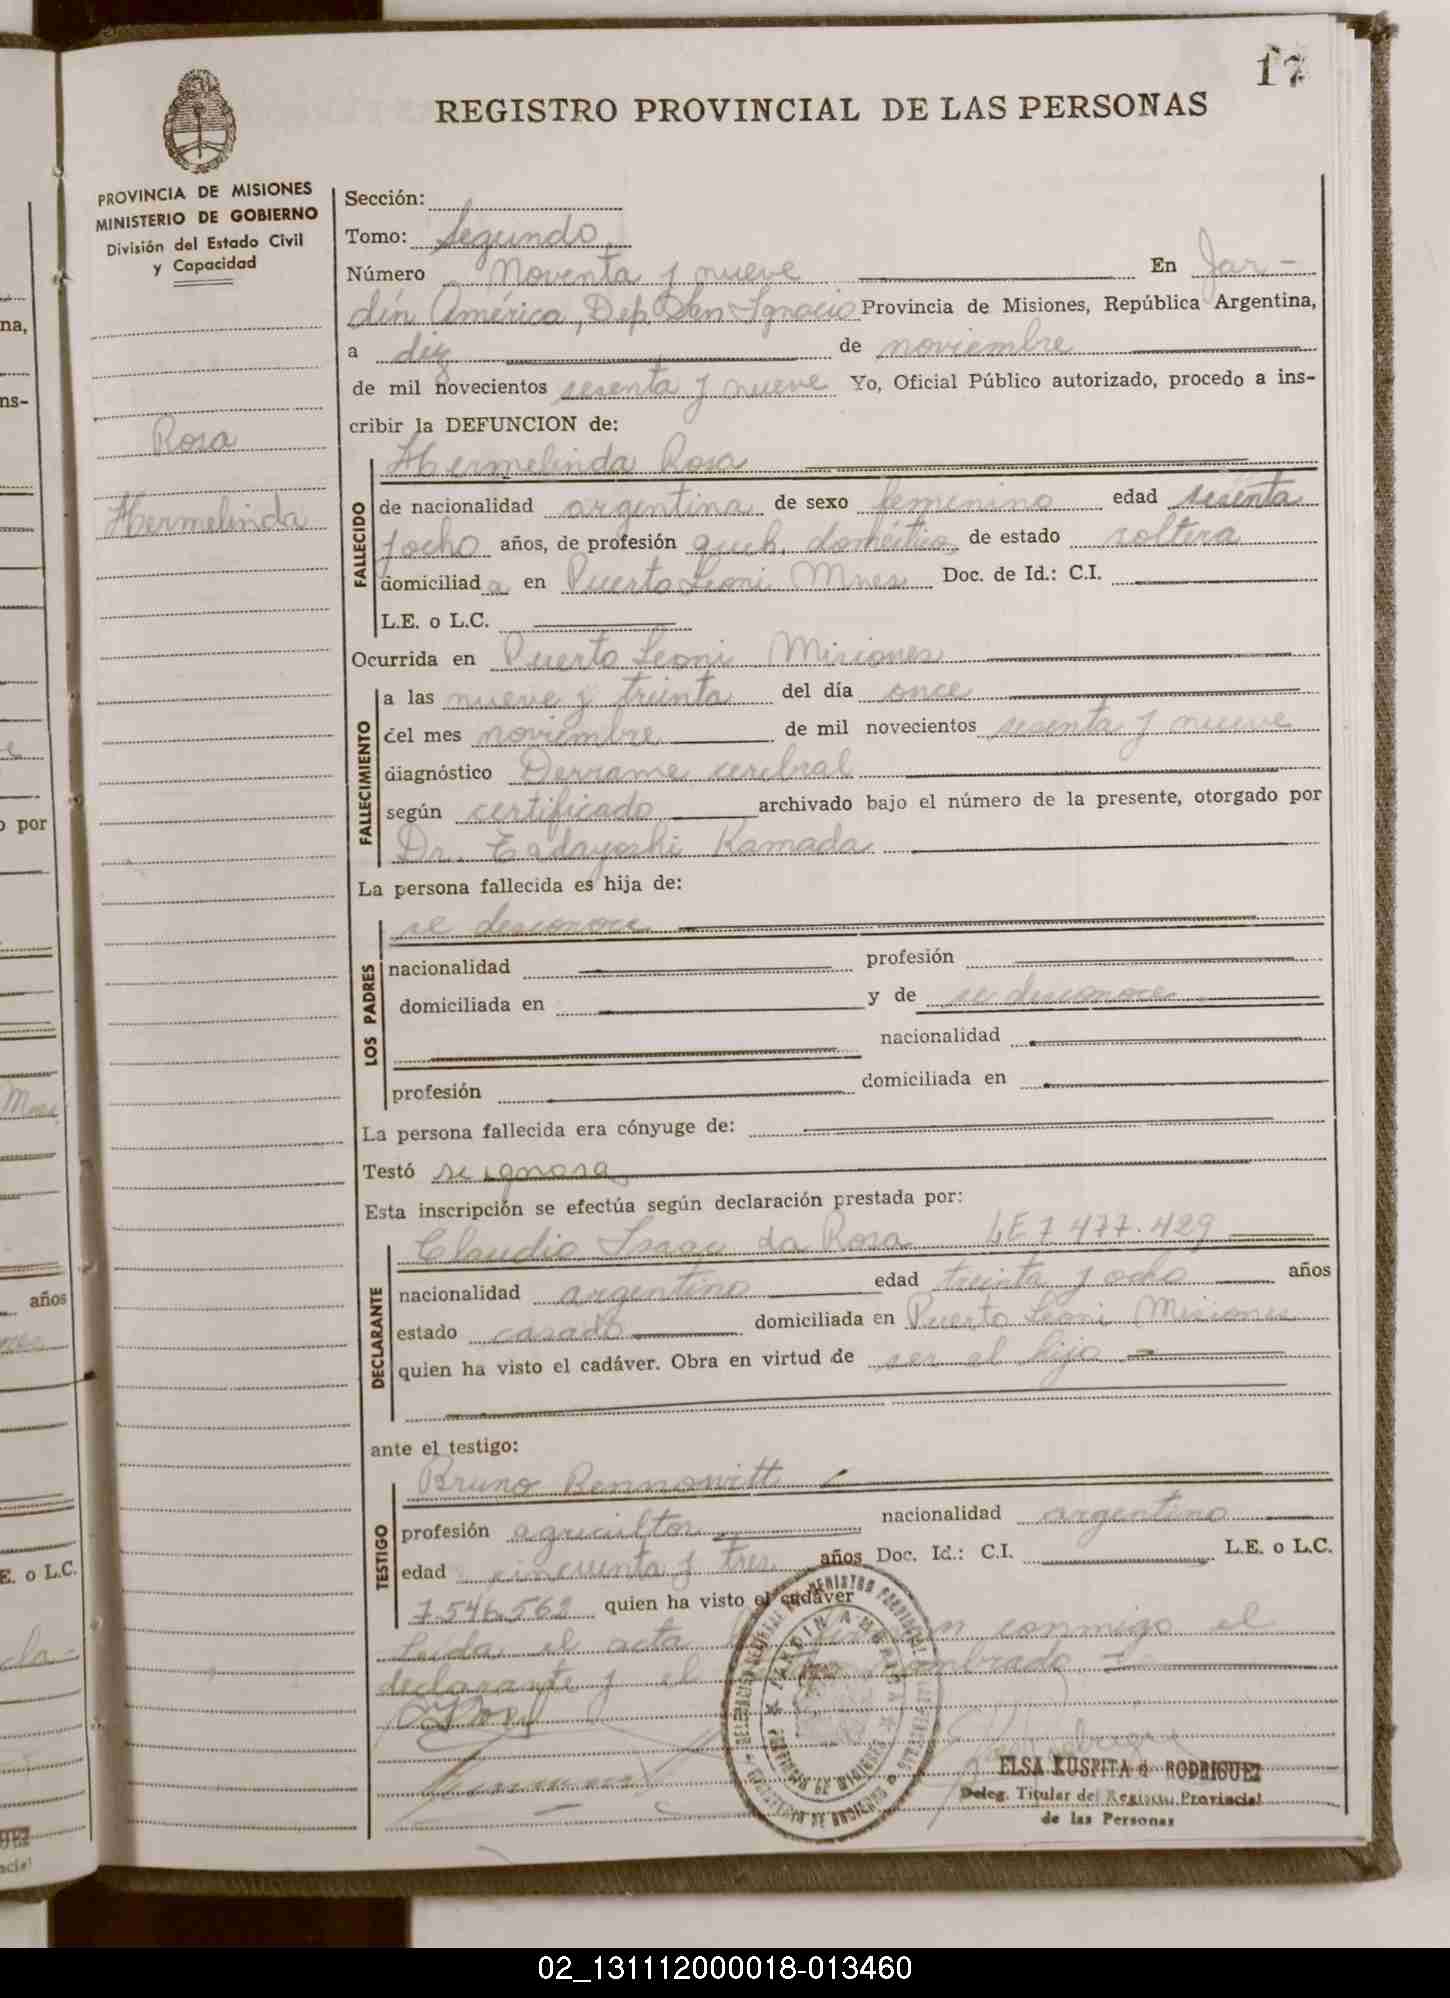 17
REGISTRO PROVINCIAL DE LAS PERSONAS
PROVINCIA DE MISIONES
MINISTERIO DE GOBIERNO
División del Estado Civil
y Capacidad
Rosa
Hermelinda
Sección:
Tomo: Segundo
Número Noventa y nueve En Jar-
dín América, Dep. San Ignacio Provincia de Misiones, República Argentina,
a diez de noviembre
de mil novecientos sesenta y nueve Yo, Oficial Público autorizado, procedo a ins-
cribir la DEFUNCION de:
Hermelinda Rosa
FALLECIDO
de nacionalidad argentina de sexo femenino edad sesenta
y ocho años, de profesión queh. doméstico de estado soltera
domiciliad a en Puerto Leoni Mnes Doc. de Id.: C.I.
L.E. o L.C.
Ocurrida en Puerto Leoni Misiones
FALLECIMIENTO
a las nueve y treinta del día once
del mes noviembre de mil novecientos sesenta y nueve
diagnóstico Derrame cerebral
según certificado archivado bajo el número de la presente, otorgado por
Dr. Tadayoshi Kamada
La persona fallecida es hija de:
LOS PADRES
se desconoce
nacionalidad profesión
domiciliada en y de se desconoce
nacionalidad
profesión domiciliada en
La persona fallecida era cónyuge de:
Testó se ignora
Esta inscripción se efectúa según declaración prestada por:
DECLARANTE
Claudio Isaac da Rosa LE 7.477.429
nacionalidad argentino edad treinta y ocho años
estado casado domiciliada en Puerto Leoni Misiones
quien ha visto el cadáver. Obra en virtud de ser el hijo
ante el testigo:
TESTIGO
Bruno Rennowitt
profesión agricultor nacionalidad argentino
edad cincuenta y tres años Doc. Id.: C.I. L.E. o L.C.
7.546.562 quien ha visto el cadáver
Leída el acta conmigo el
declarante y el nombrado
JARDIN AMERICA
ELSA KUSPITA d RODRIGUEZ
Deleg. Titular del Registro Provincial
de las Personas
na,
ns-
o por
Mnes
años
E. o L.C.
02_131112000018-013460